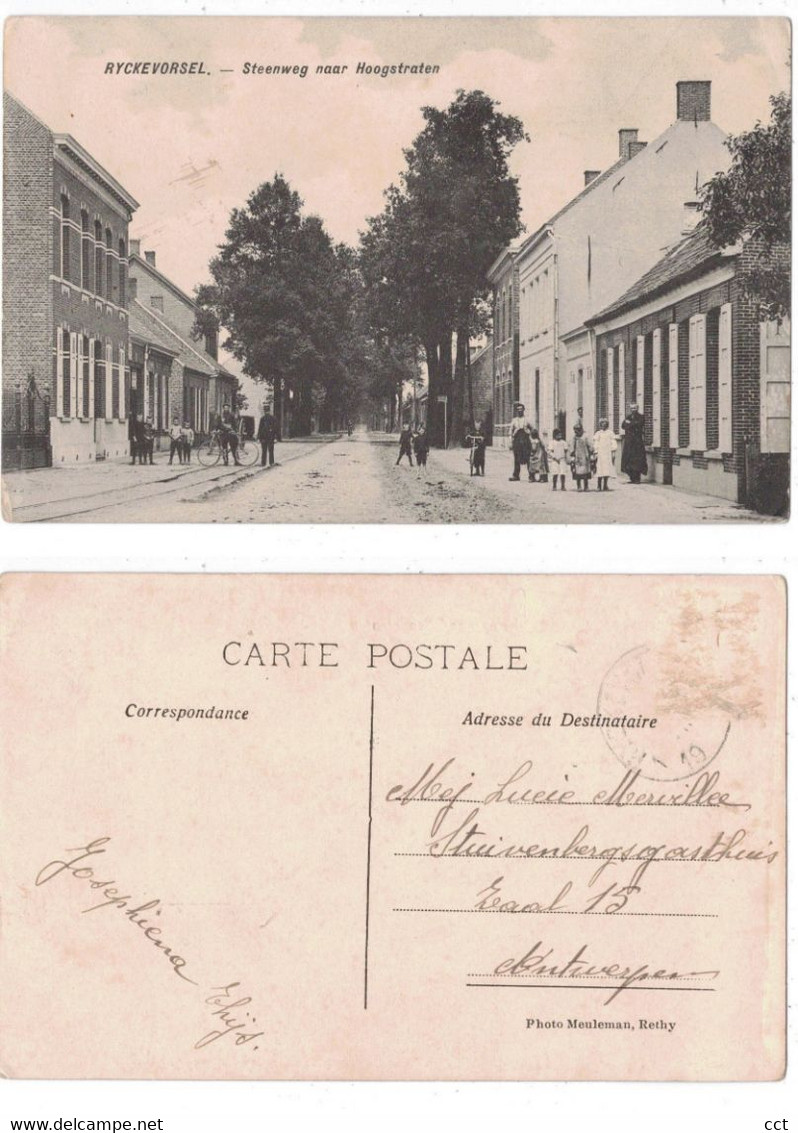 RYCKEVORSEL. — Steenweg naar Hoogstraten
CARTE POSTALE
Correspondance
Adresse du Destinataire
19
Mej Lucie Mervillee
Stuivenbergsgasthuis
Zaal 15
Antwerpen
Josephiena
Thijs.
Photo Meuleman, Rethy
delcampe.net
cct